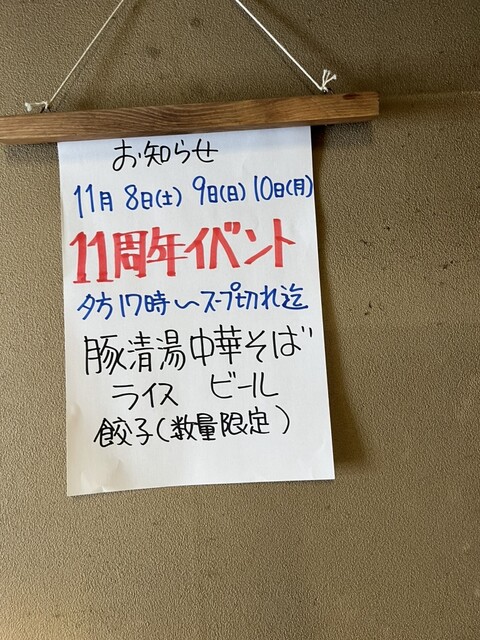 お知らせ
11月 8日(土) 9日(日) 10日(月)
11周年イベント
夕方17時〜スープ切れ迄
豚清湯中華そば
ライス ビール
餃子(数量限定)